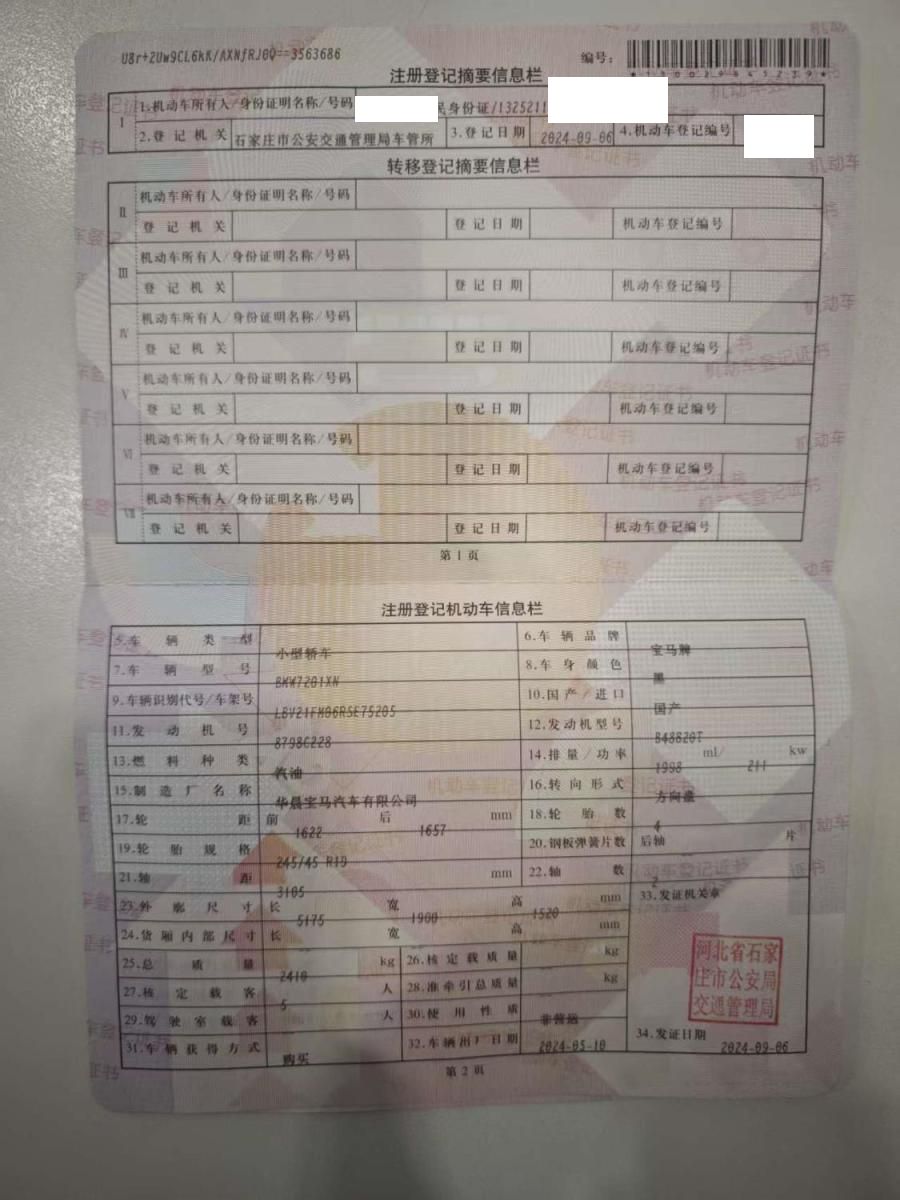 U8r+2Uw9CL6kK/AXNfRJ0Q==3563686
编号：
*130029845239*
注册登记摘要信息栏
I
1.机动车所有人/身份证明名称/号码 民身份证/1325211
2.登记机关 石家庄市公安交通管理局车管所 3.登记日期 2024-09-06 4.机动车登记编号
转移登记摘要信息栏
II
机动车所有人/身份证明名称/号码
登记机关 登记日期 机动车登记编号
III
机动车所有人/身份证明名称/号码
登记机关 登记日期 机动车登记编号
IV
机动车所有人/身份证明名称/号码
登记机关 登记日期 机动车登记编号
V
机动车所有人/身份证明名称/号码
登记机关 登记日期 机动车登记编号
VI
机动车所有人/身份证明名称/号码
登记机关 登记日期 机动车登记编号
VII
机动车所有人/身份证明名称/号码
登记机关 登记日期 机动车登记编号
第1页
注册登记机动车信息栏
5.车辆类型 小型轿车 6.车辆品牌 宝马牌
7.车辆型号 BMW7201XN 8.车身颜色 黑
9.车辆识别代号/车架号 LBV21FM06RSE75205 10.国产/进口 国产
11.发动机号 8798C228 12.发动机型号 B4882OT
13.燃料种类 汽油 14.排量/功率 1998 ml/ 211 kw
15.制造厂名称 华晨宝马汽车有限公司 16.转向形式 方向盘
17.轮距 前 1622 后 1657 mm 18.轮胎数 4
19.轮胎规格 245/45 R19 20.钢板弹簧片数 后轴 片
21.轴距 3105 mm 22.轴数 2
23.外廓尺寸 长 5175 宽 1900 高 1520 mm 33.发证机关章
24.货厢内部尺寸 长 宽 高 mm
河北省石家
庄市公安局
交通管理局
25.总质量 2410 kg 26.核定载质量 kg
27.核定载客 5 人 28.准牵引总质量 kg
29.驾驶室载客 人 30.使用性质 非营运
31.车辆获得方式 购买 32.车辆出厂日期 2024-05-10 34.发证日期 2024-09-06
第2页